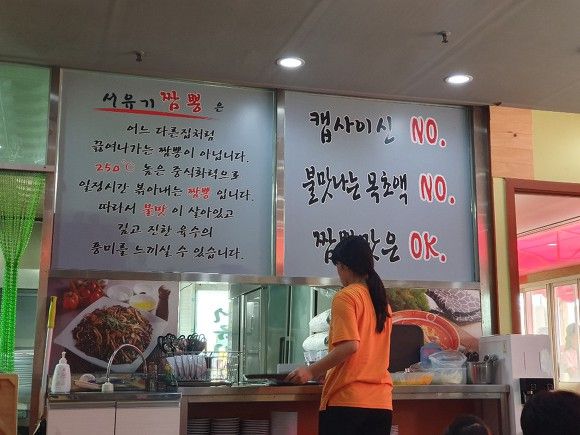 서유기짬뽕 은
어느 다른집처럼
끓여나가는 짬뽕이 아닙니다.
250℃ 높은 중식화력으로
일정시간 볶아내는 짬뽕 입니다.
따라서 불맛 이 살아있고
깊고 진한 육수의
풍미를 느끼실 수 있습니다.
캡사이신 NO.
불맛나는 목초액 NO.
짬뽕맛은 OK.